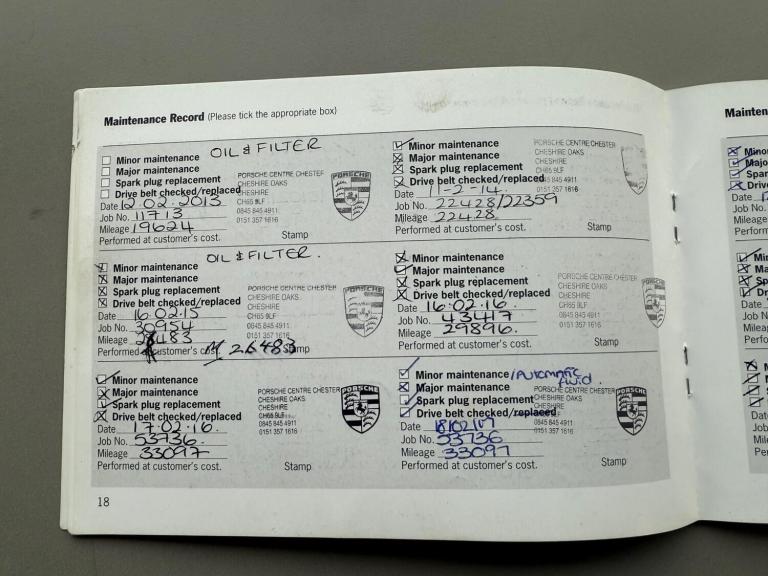 Maintenance Record (Please tick the appropriate box)
OIL & FILTER
Minor maintenance
Major maintenance
Spark plug replacement
Drive belt checked/replaced
Date 12.02.2013
Job No. 11713
Mileage 19624
Performed at customer's cost.
Stamp
PORSCHE CENTRE CHESTER
CHESHIRE OAKS
CHESHIRE
CH65 9LF
0845 845 4911
0151 357 1616
PORSCHE
Minor maintenance
Major maintenance
Spark plug replacement
Drive belt checked/replaced
Date 11-2-14.
Job No. 22428/22359
Mileage 22428.
Performed at customer's cost.
Stamp
PORSCHE CENTRE CHESTER
CHESHIRE OAKS
CHESHIRE
CH65 9LF
0845 845 4911
0151 357 1616
OIL & FILTER.
Minor maintenance
Major maintenance
Spark plug replacement
Drive belt checked/replaced
Date 16.02.15
Job No. 30954
Mileage
Performed customer's cost.
26483
Stamp
PORSCHE CENTRE CHESTER
CHESHIRE OAKS
CHESHIRE
CH65 9LF
0845 845 4911
0151 357 1616
PORSCHE
Minor maintenance
Major maintenance
Spark plug replacement
Drive belt checked/replaced
Date 16.02.16.
Job No. 43417
Mileage 29896.
Performed at customer's cost.
Stamp
PORSCHE CENTRE CHESTER
CHESHIRE OAKS
CHESHIRE
CH65 9LF
0845 845 4911
0151 357 1616
Minor maintenance
Major maintenance
Spark plug replacement
Drive belt checked/replaced
Date 17.02.16.
Job No. 53736.
Mileage 33097
Performed at customer's cost.
Stamp
PORSCHE CENTRE CHESTER
CHESHIRE OAKS
CHESHIRE
CH65 9LF
0845 845 4911
0151 357 1616
PORSCHE
Minor maintenance /Automatic fluid.
Major maintenance
Spark plug replacement
Drive belt checked/replaced
Date 18/02/17
Job No. 53736
Mileage 33097
Performed at customer's cost.
Stamp
PORSCHE CENTRE CHESTER
CHESHIRE OAKS
CHESHIRE
CH65 9LF
0845 845 4911
0151 357 1616
PORSCHE
18